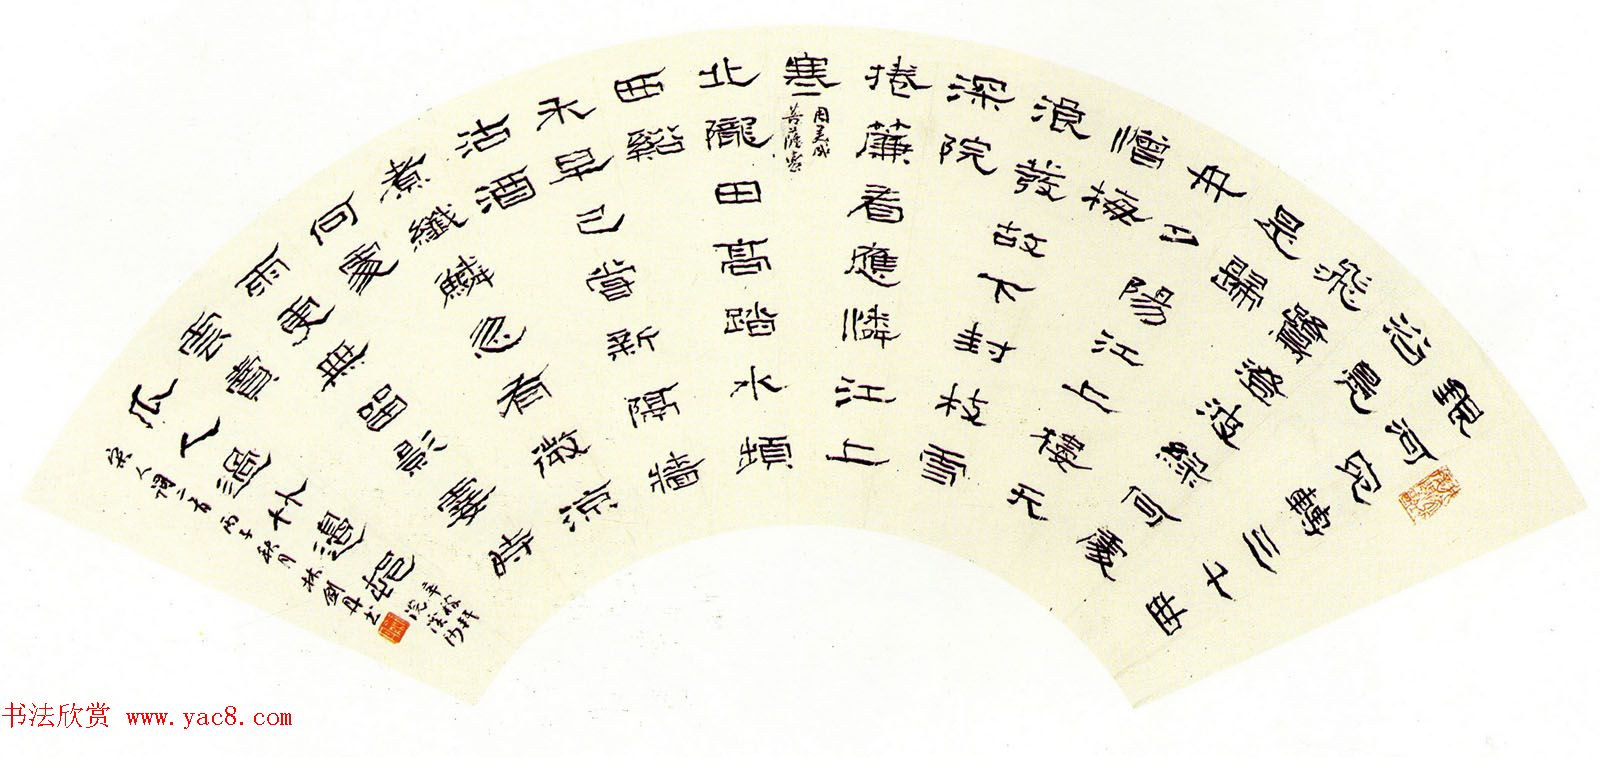 銀河宛轉三十曲
浴鳧
飛鷺澄波綠何處
是歸
舟夕陽江上樓天
憎梅
浪發故下封枝雪
深院
捲簾看應憐江上
寒
周美成
菩薩蠻
北隴田高踏水頻
西谿
禾早已嘗新隔牆
沽酒
煮纖鱗忽有微涼
何處
雨更無留影霎時
雲賣
瓜人過竹邊村
辛稼軒
浣溪沙
宋人詞二首丙子秋月林劍丹書
书法欣赏 www.yac8.com